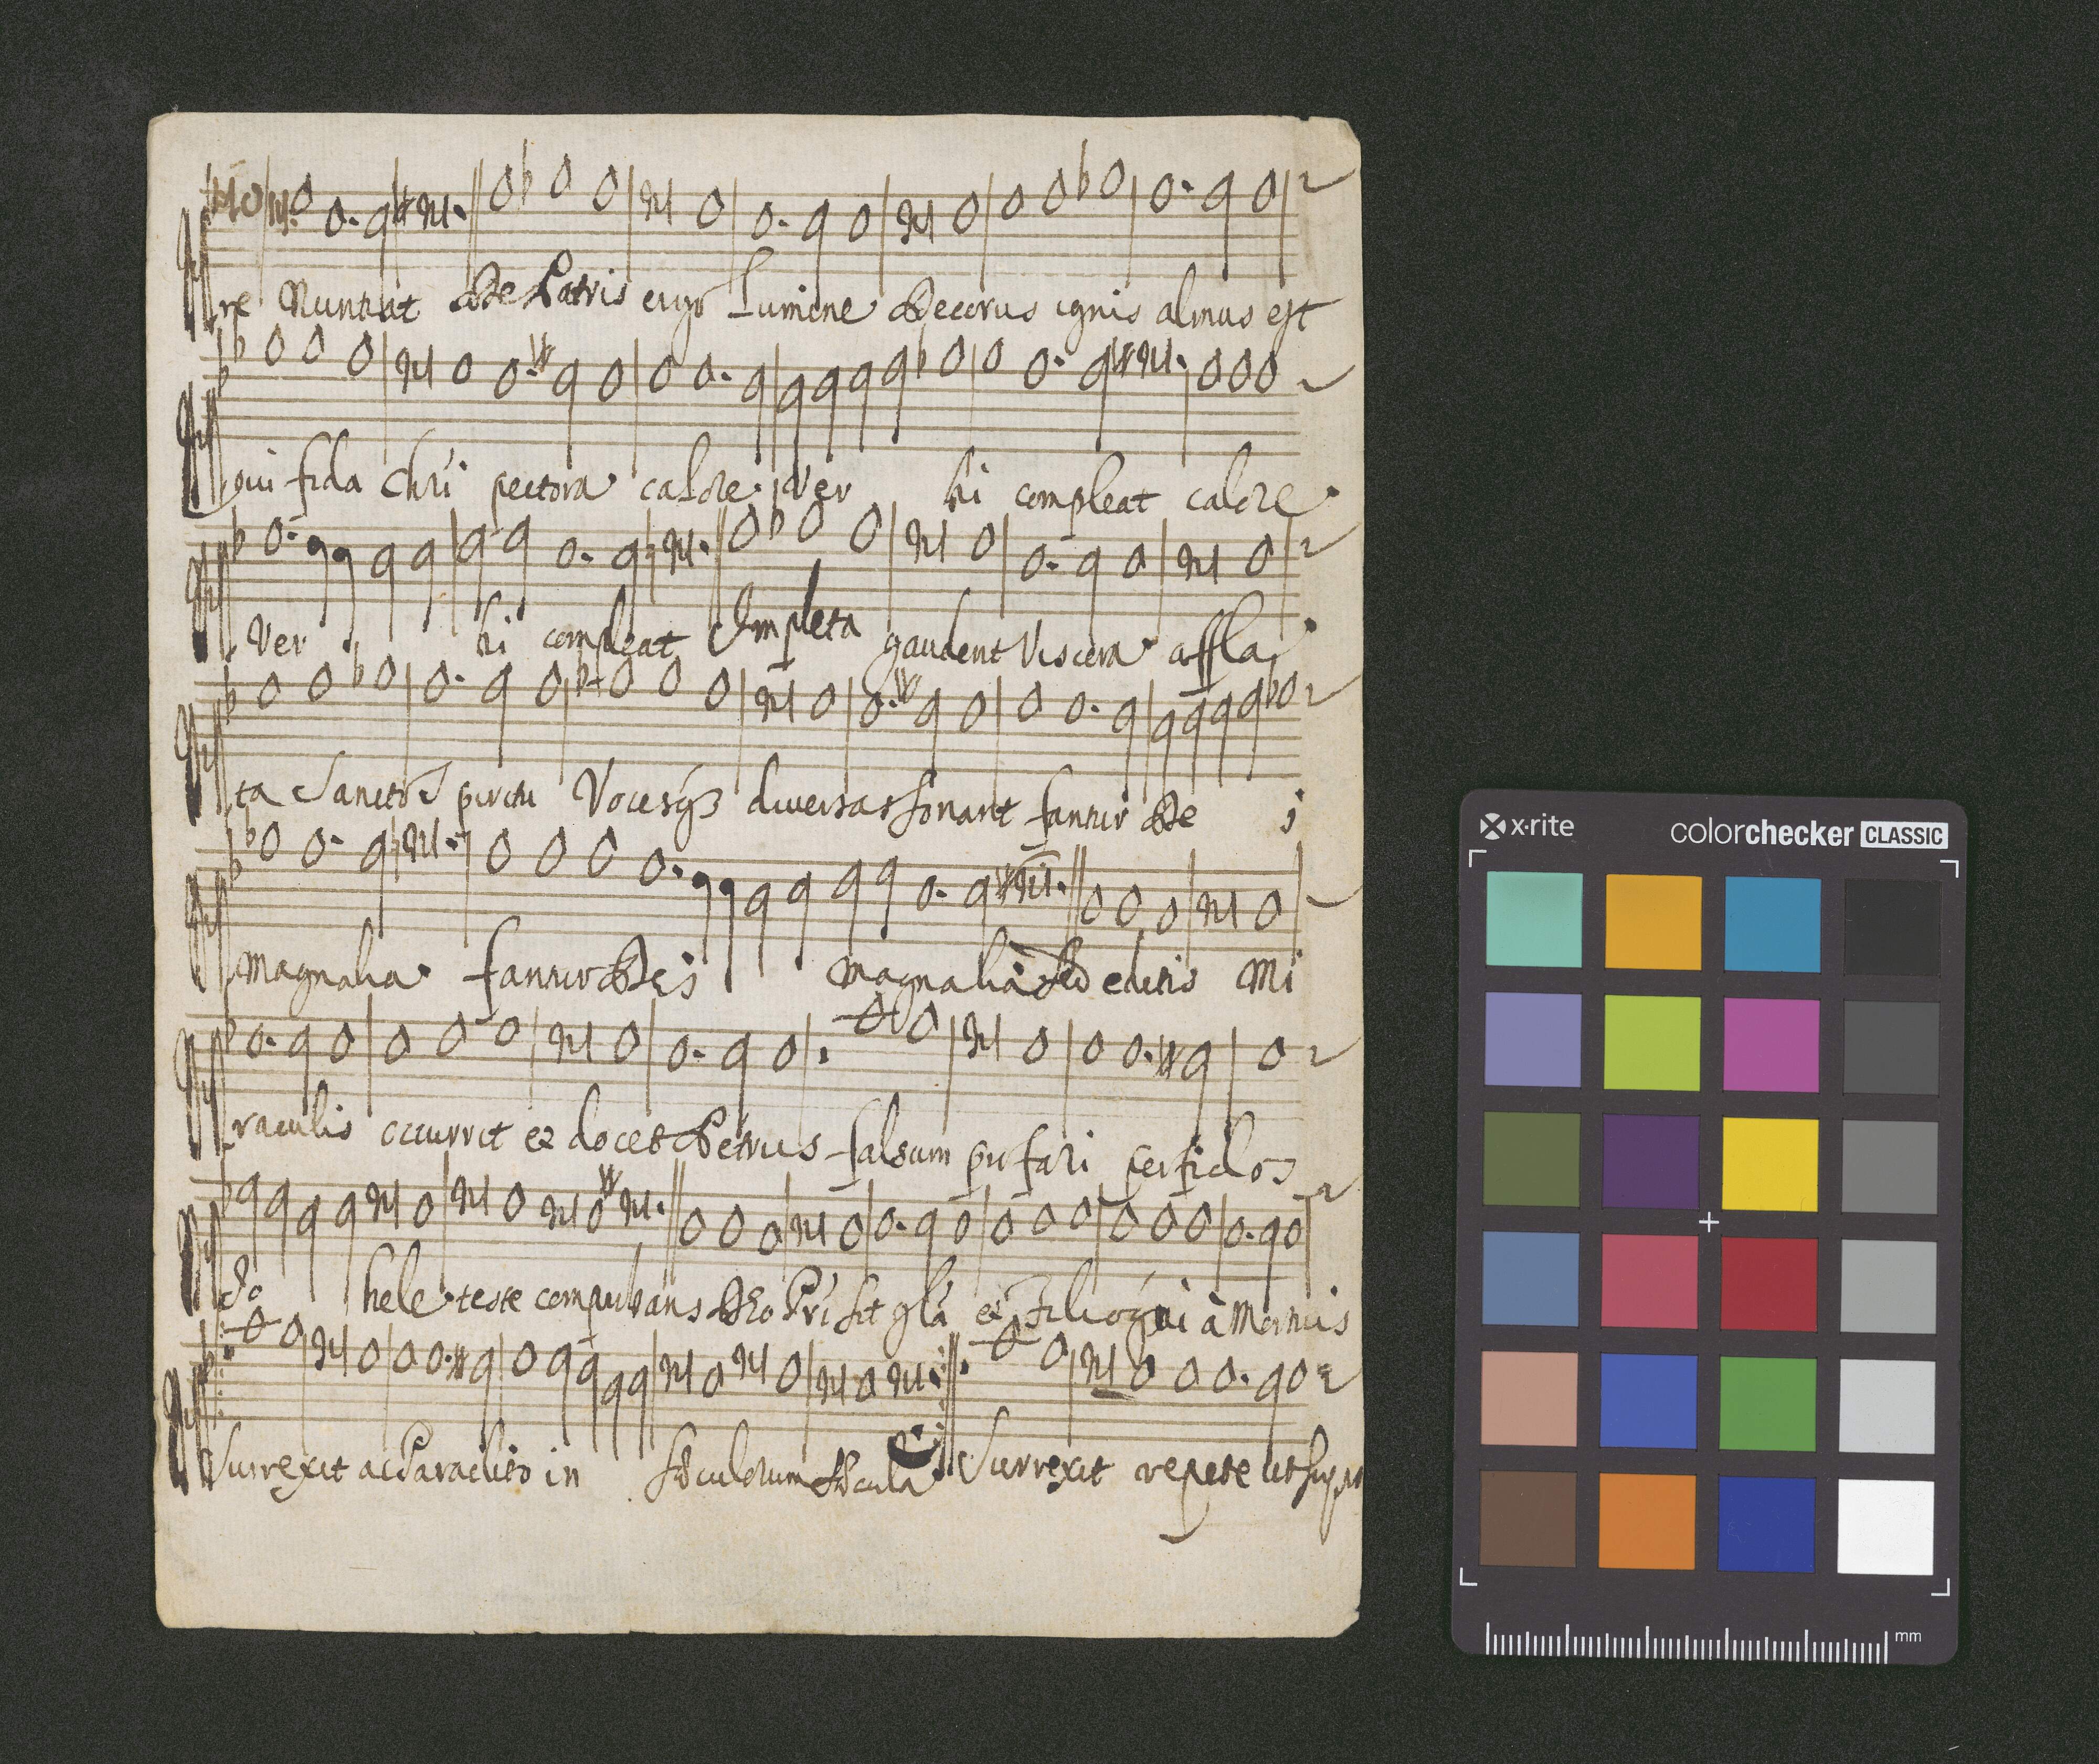 re Nuntiat De Patris ergo Lumine Decorus ignis almus est
qui fida Chri pectora calore Ver bi compleat calore
Ver bi compleat Impleta gaudent Viscera affla
ta Sancto Spiritu Vocesq3 diversas sonant fantur De i
magnalia fantur Dei magnalia editis Mi
raculis occurrit et docet Petrus falsum perfidos
hele teste comprobans Pri sit gla et filio qui à Mortuis
Surrexit ac Paraclito in sæculorum sæcula Surrexit repete ut supra
x·rite colorchecker CLASSIC
mm